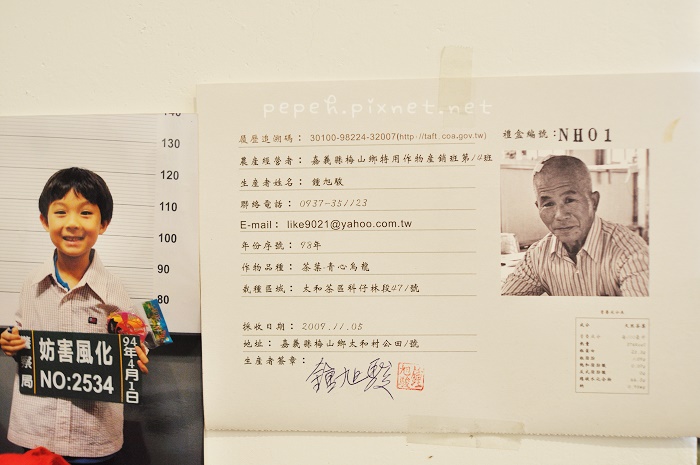 pepeh.pixnet.net
履歷追溯碼： 30100-98224-32007(http://taft.coa.gov.tw)
農產經營者： 嘉義縣梅山鄉特用作物產銷班第14班
生產者姓名： 鍾旭駿
聯絡電話： 0937-351123
E-mail： like9021@yahoo.com.tw
年份序號： 98年
作物品種： 茶葉·青心烏龍
栽種區域： 太和茶區科仔林段471號
採收日期： 2009.11.05
地址： 嘉義縣梅山鄉太和村公田1號
生產者簽章：
鍾旭駿
禮盒編號：NH01
140
130
120
110
100
90
80
妨害風化
NO:2534
94年4月1日
警察局